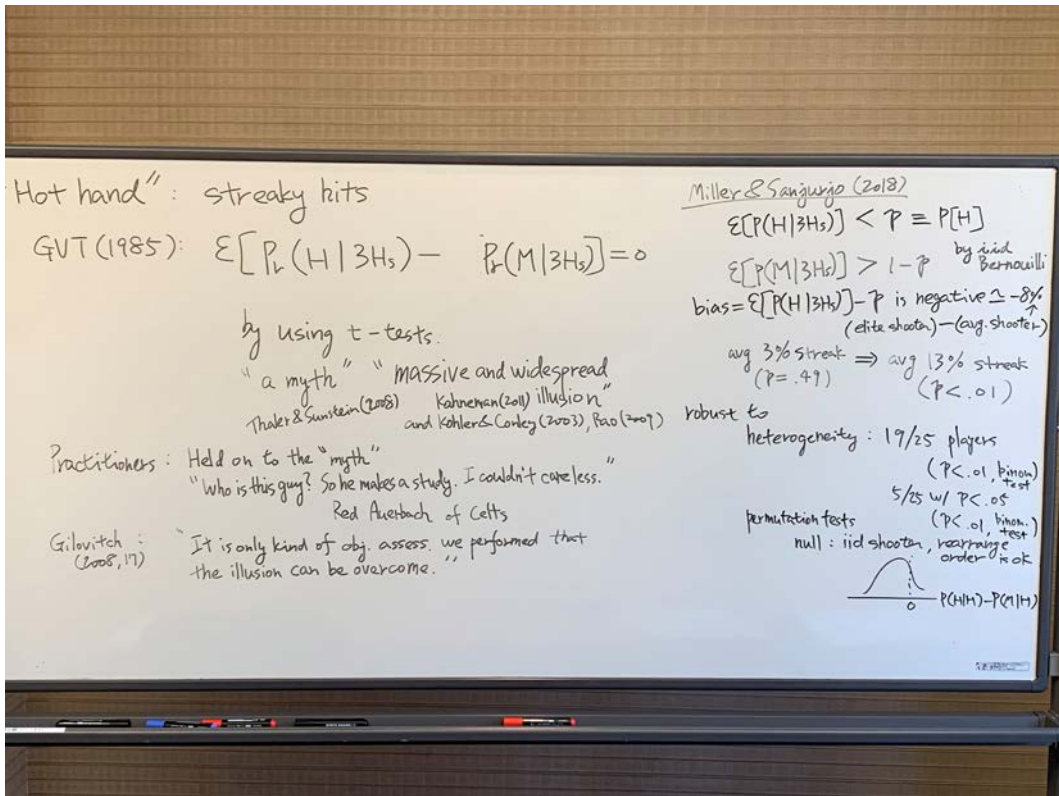 "Hot hand": streaky hits
GVT (1985): ℰ[Pr(H|3Hs) - Pr(M|3Hs)] = 0
by using t-tests.
"a myth" "massive and widespread
Thaler & Sunstein (2008) Kahneman (2011) illusion"
and Kohler & Conley (2003), Rao (2009)
Practitioners: Held on to the "myth"
"Who is this guy? So he makes a study. I couldn't care less."
Red Auerbach of Celts
Gilovitch: "It is only kind of obj. assess. we performed that
(2008, 17) the illusion can be overcome."
Miller & Sanjurjo (2018)
ℰ[P(H|3Hs)] < p ≡ P[H]
ℰ[P(M|3Hs)] > 1-p by iid
Bernouilli
bias = ℰ[P(H|3Hs)] - p is negative ≃ -8%
↑
(elite shooter) - (avg. shooter)
avg 3% streak ⇒ avg 13% streak
(P = .49) (P < .01)
robust to
heterogeneity: 19/25 players
(P < .01, binom.
test)
5/25 w/ P < .05
(P < .01, binom.
test)
permutation tests
null: iid shooter, rearrange
order is ok
0 P(H|H) - P(M|H)